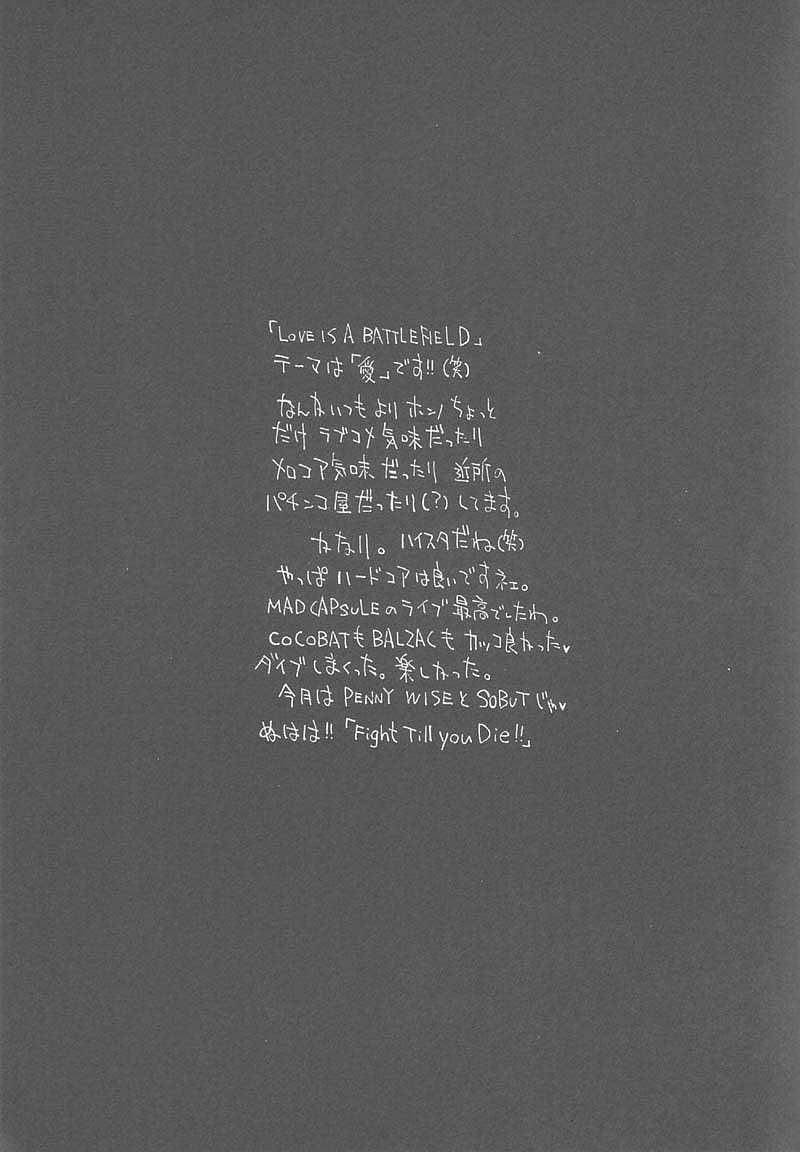 「LOVE IS A BATTLEFIELD」
テーマは「愛」です!!(笑)
なんかいつもより ホンノ ちょっと
だけ ラブコメ気味だったり
メロコア気味だったり 近所の
パチンコ屋だったり(?)してます。
かなり。ハイスタだね(笑)
やっぱ ハードコアは良いですネェ。
MAD CAPSULEのライブ最高でしたわ。
COCOBATもBALZACも カッコ良かった♥
ダイブしまくった。楽しかった。
今月は PENNY WISEとSOBUTじゃ♥
ぬはは!!「Fight Till you Die!!」